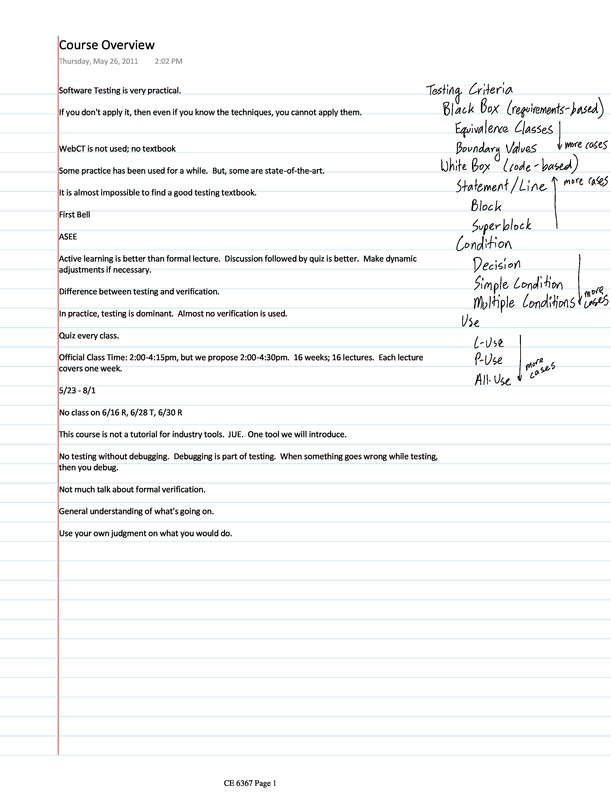 Course Overview
Thursday, May 26, 2011 2:02 PM
Software Testing is very practical.
If you don't apply it, then even if you know the techniques, you cannot apply them.
WebCT is not used; no textbook
Some practice has been used for a while. But, some are state-of-the-art.
It is almost impossible to find a good testing textbook.
First Bell
ASEE
Active learning is better than formal lecture. Discussion followed by quiz is better. Make dynamic
adjustments if necessary.
Difference between testing and verification.
In practice, testing is dominant. Almost no verification is used.
Quiz every class.
Official Class Time: 2:00-4:15pm, but we propose 2:00-4:30pm. 16 weeks; 16 lectures. Each lecture
covers one week.
5/23 - 8/1
No class on 6/16 R, 6/28 T, 6/30 R
This course is not a tutorial for industry tools. JUE. One tool we will introduce.
No testing without debugging. Debugging is part of testing. When something goes wrong while testing,
then you debug.
Not much talk about formal verification.
General understanding of what's going on.
Use your own judgment on what you would do.
Testing Criteria
Black Box (requirements-based)
Equivalence Classes
Boundary Values
more cases
White Box (code-based)
Statement/Line
more cases
Block
Superblock
Condition
Decision
Simple Condition
Multiple Conditions
more
cases
Use
C-Use
P-Use
All-Use
more
cases
CE 6367 Page 1